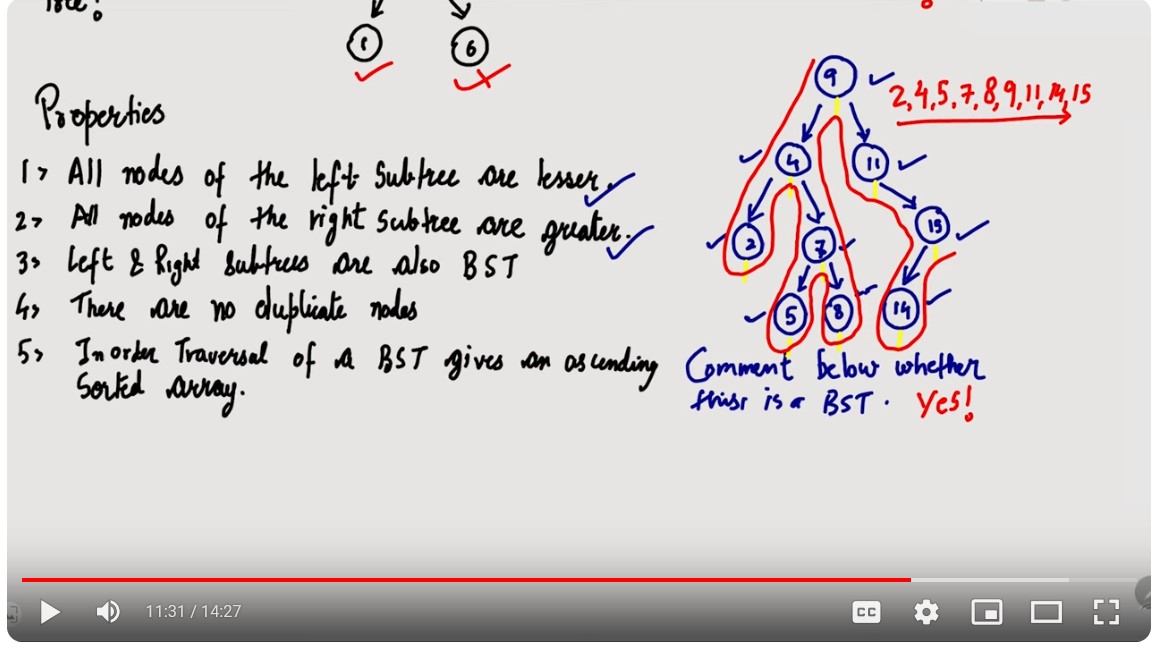 1
6
Properties
1> All nodes of the left Subtree are lesser.
2> All nodes of the right Subtree are greater.
3> Left & Right Subtrees are also BST
4> There are no duplicate nodes
5> Inorder Traversal of a BST gives an ascending
Sorted array.
9
2,4,5,7,8,9,11,14,15
4
11
2
7
15
5
8
14
Comment below whether
this is a BST. Yes!
11:31 / 14:27
CC